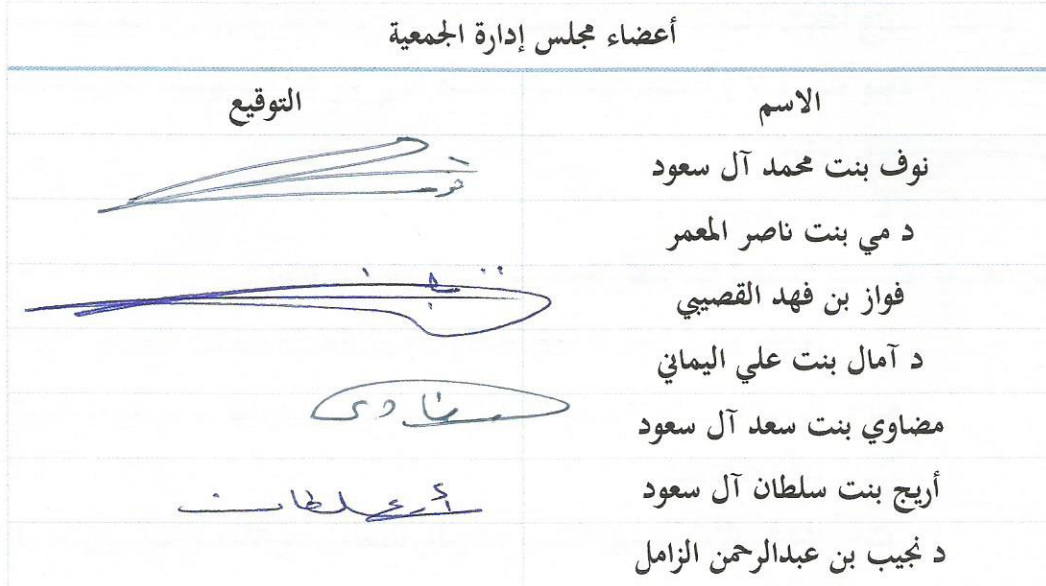 أعضاء مجلس إدارة الجمعية
الاسم التوقيع
نوف بنت محمد آل سعود
د مي بنت ناصر المعمر
فواز بن فهد القصيبي
د آمال بنت علي اليماني
مضاوي بنت سعد آل سعود
أريج بنت سلطان آل سعود
د نجيب بن عبدالرحمن الزامل